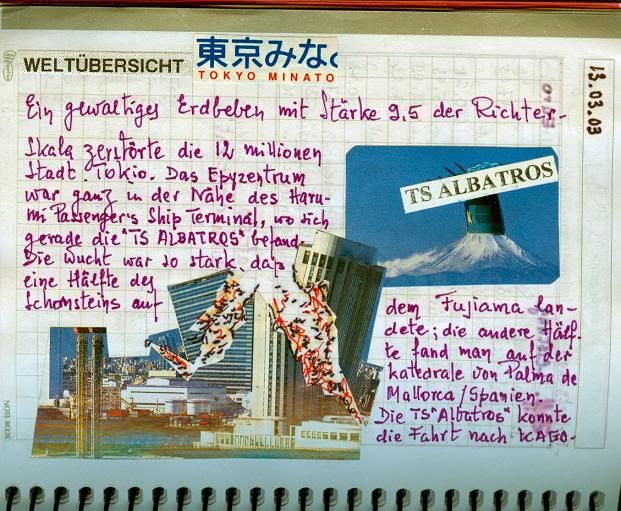 WELTÜBERSICHT
東京みな
TOKYO MINATO
13.03.03
Ein gewaltiges Erdbeben mit Stärke 9,5 der Richter-
Skala zerstörte die 12 millionen
Stadt Tokio. Das Epyzentrum
war ganz in der Nähe des Haru-
mi Passenger's Ship Terminal, wo sich
gerade die "TS ALBATROS" befand.
Die Wucht war so stark, daß
eine Hälfte des
Schornsteins auf
TS ALBATROS
dem Fujiama lan-
dete; die andere Hälf-
te fand man auf der
Kattedrale von Palma de
Mallorca/Spanien.
Die TS "Albatros" konnte
die Fahrt nach KAGO-
NOTE BOOK